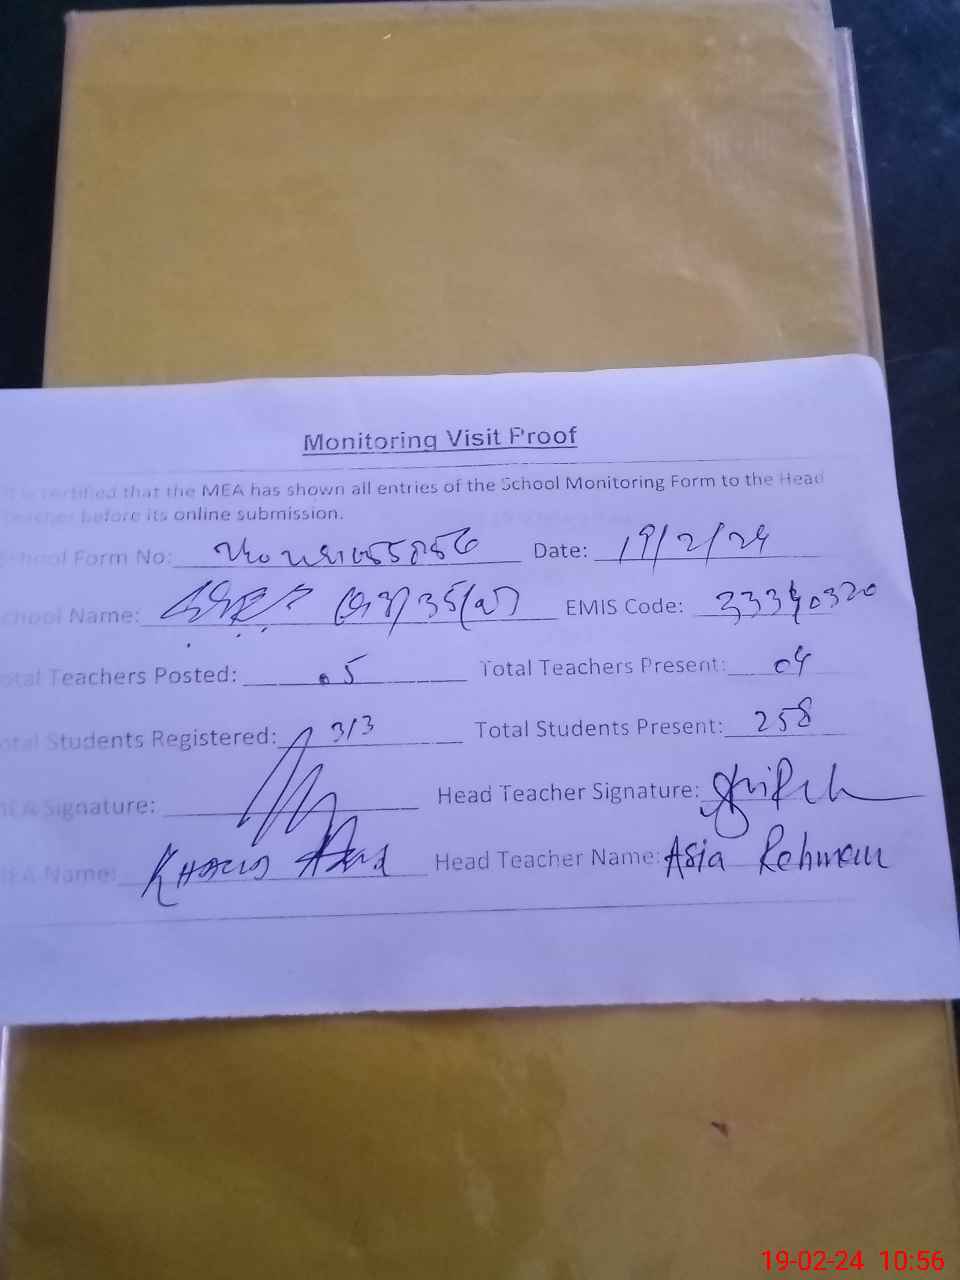 Monitoring Visit Proof
It is certified that the MEA has shown all entries of the School Monitoring Form to the Head
Teacher before its online submission.
School Form No: Date: 19/2/24
School Name: EMIS Code: 33340320
Total Teachers Posted: 05 Total Teachers Present: 04
Total Students Registered: 313 Total Students Present: 258
MEA Signature: Head Teacher Signature:
MEA Name: Head Teacher Name: Asia Rehman
19-02-24 10:56